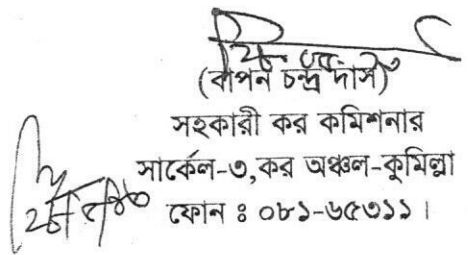 (বাপন চন্দ্র দাস)
সহকারী কর কমিশনার
সার্কেল-৩,কর অঞ্চল-কুমিল্লা
ফোন ঃ ০৮১-৬৫৩১১।